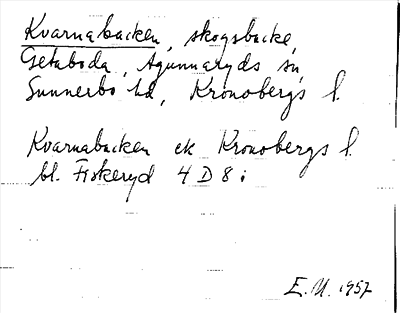 Kvarnabacken, skogsbacke,
Getaboda, Agunnaryds sn,
Sunnerbo hd, Kronobergs l.
Kvarnabacken ek Kronobergs l.
bl. Fiskeryd 4 D 8 i
E.U. 1957